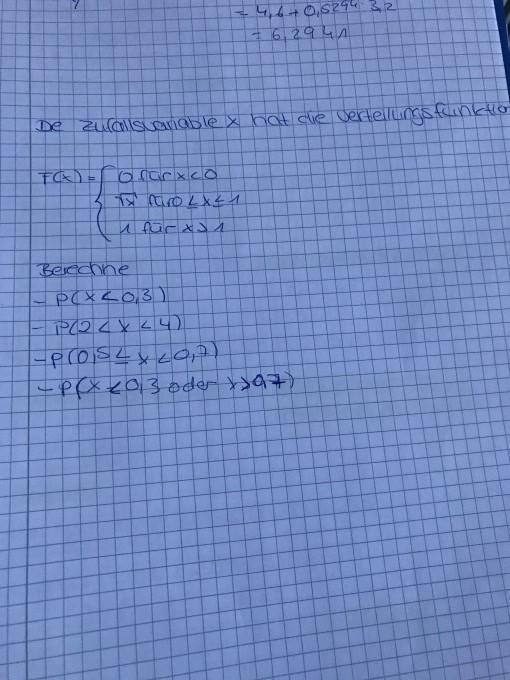 = 4,6 + 0,5294 · 3,2
= 6,2941
De Zufallsvariable x hat die Verteilungsfunktio
F(x) = { 0 für x < 0
√x für 0 ≤ x ≤ 1
1 für x > 1
Berechne
- P(x < 0,3)
- P(2 < x < 4)
- P(0,5 ≤ x < 0,7)
- P(x < 0,3 oder x > 0,7)